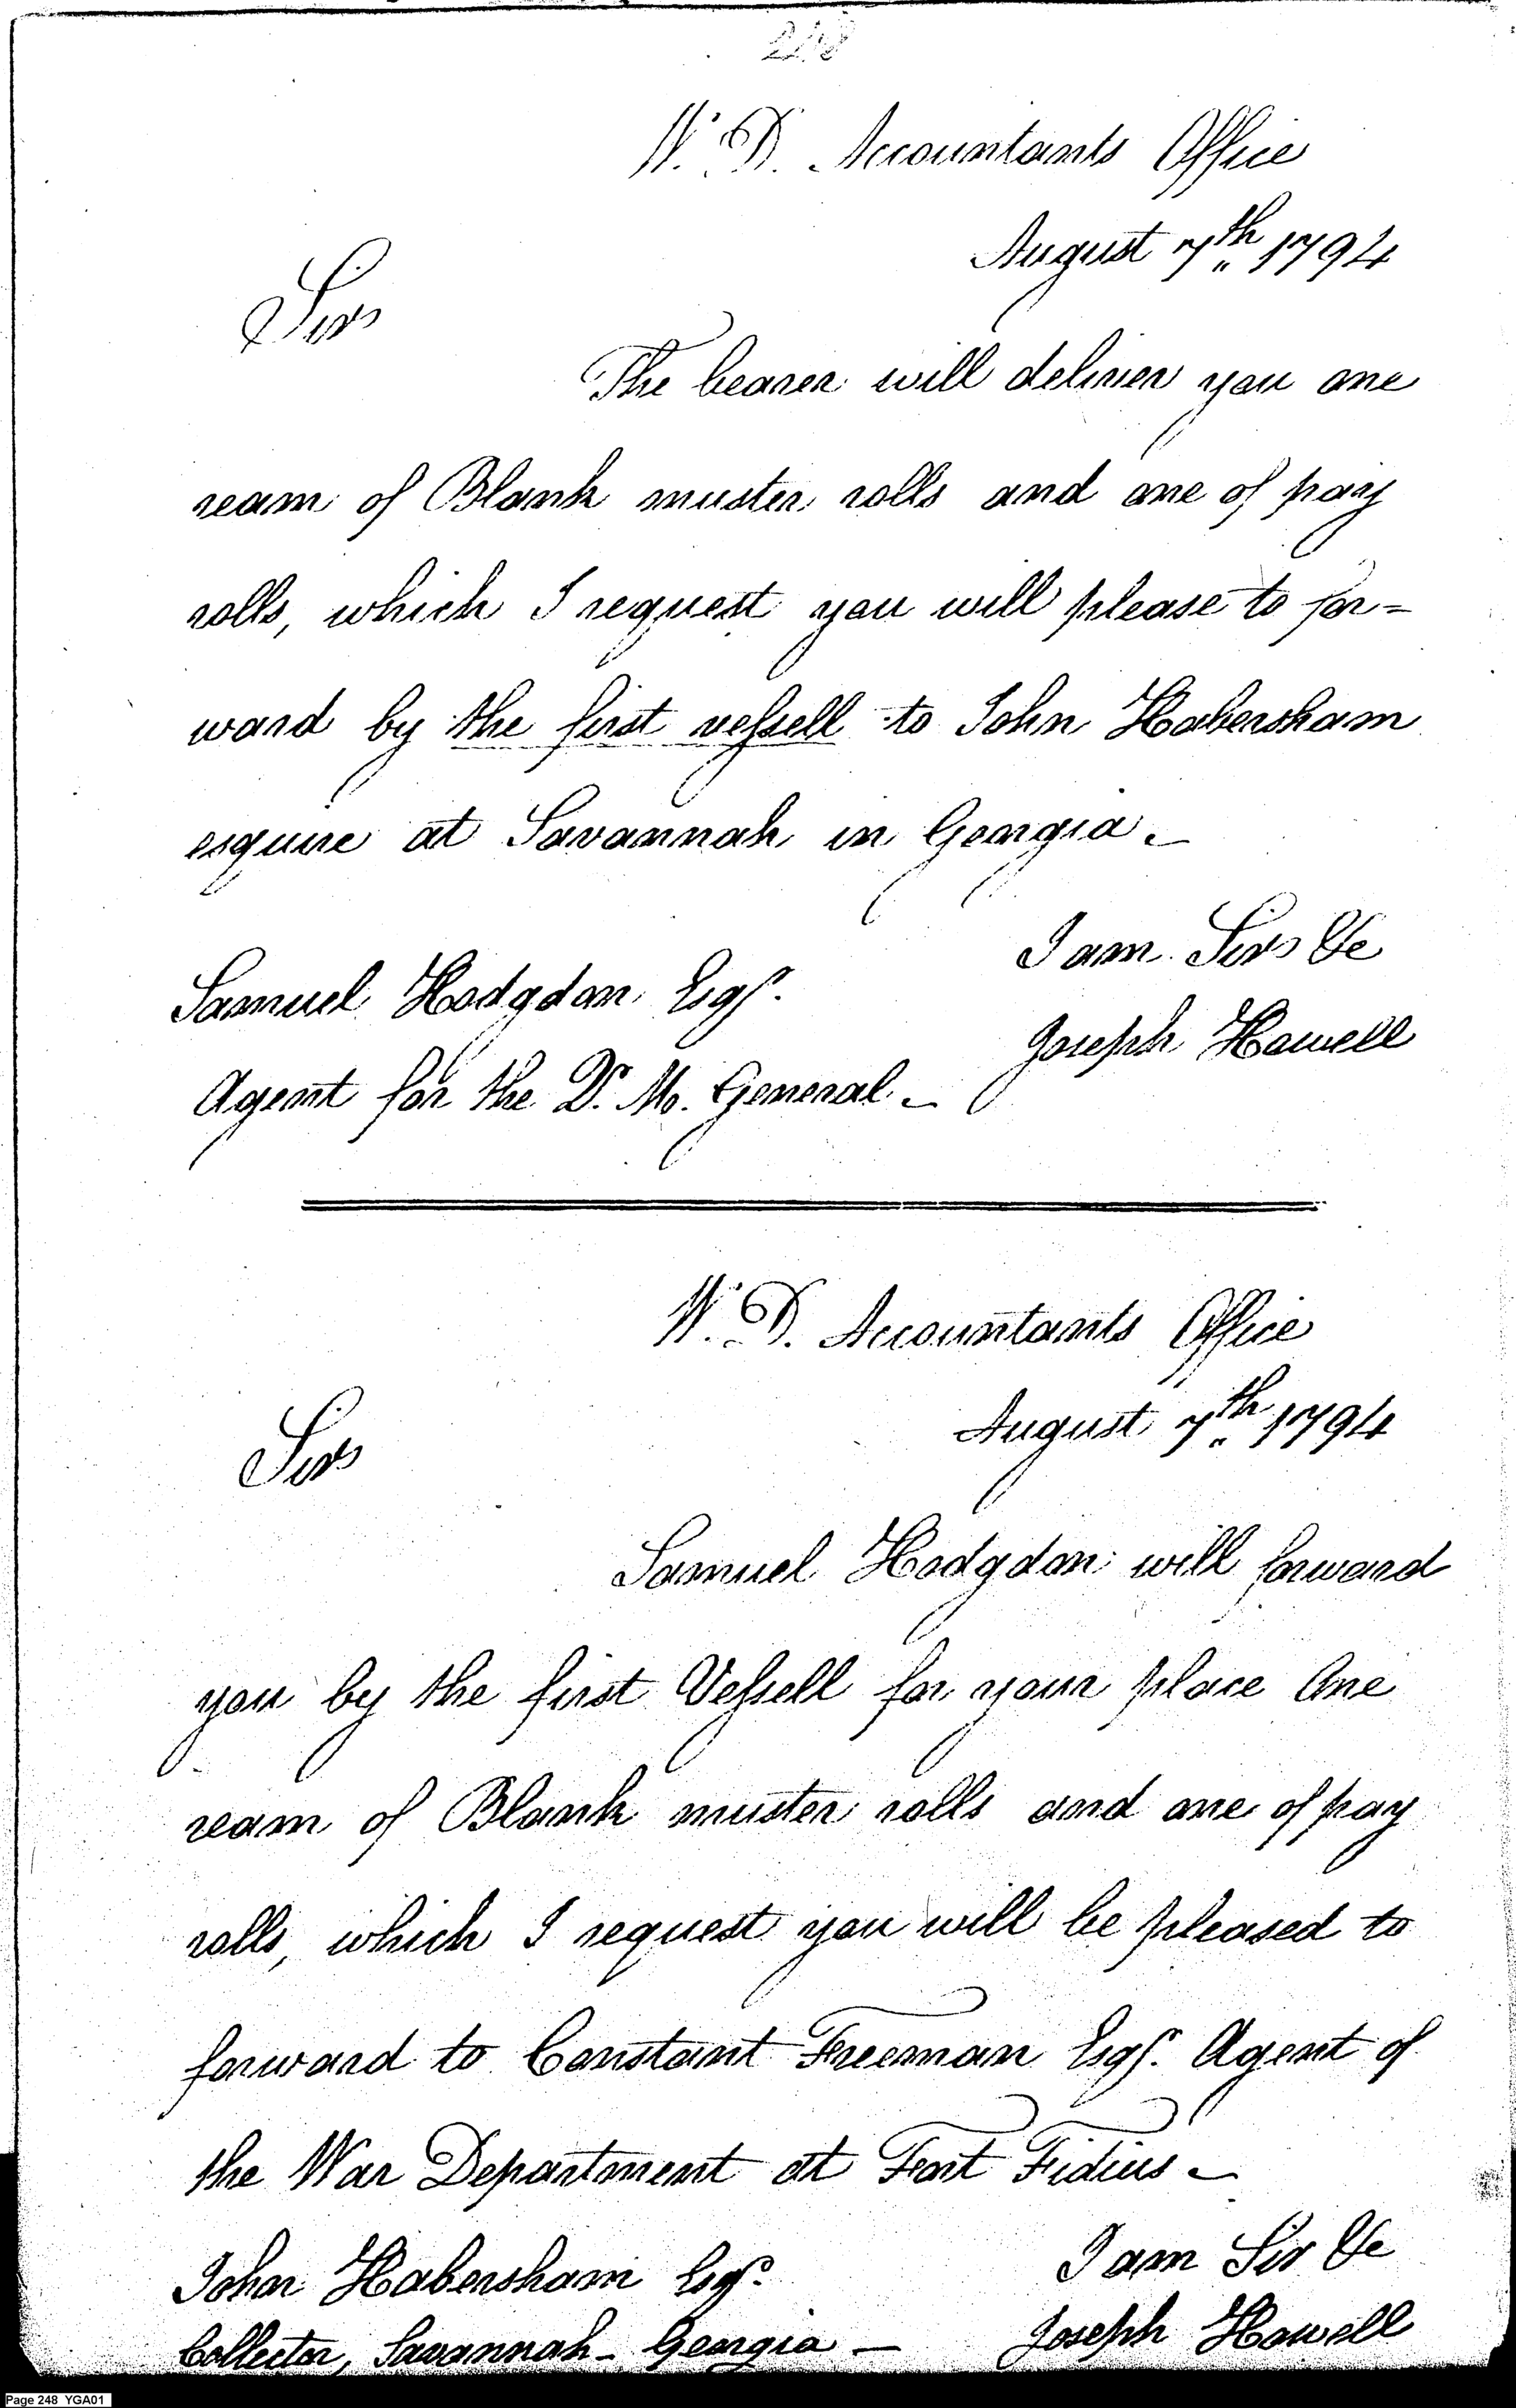 248
W. D. Accountants Office
August 7th 1794
Sir
The bearer will deliver you one
ream of Blank muster rolls and one of pay
rolls, which I request you will please to for=
ward by the first vessell to John Habersham
esquire at Savannah in Georgia.
I am Sir &c
Samuel Hodgdon Esqr.
Joseph Howell
Agent for the Q. M. General.
W. D. Accountants Office
August 7th 1794
Sir
Samuel Hodgdon will forward
you by the first Vessell for your place One
ream of Blank muster rolls and one of pay
rolls, which I request you will be pleased to
forward to Constant Freeman Esqr. Agent of
the War Department at Fort Fidius
I am Sir &c
John Habersham Esqr.
Joseph Howell
Collector, Savannah - Georgia —
Page 248 YGA01